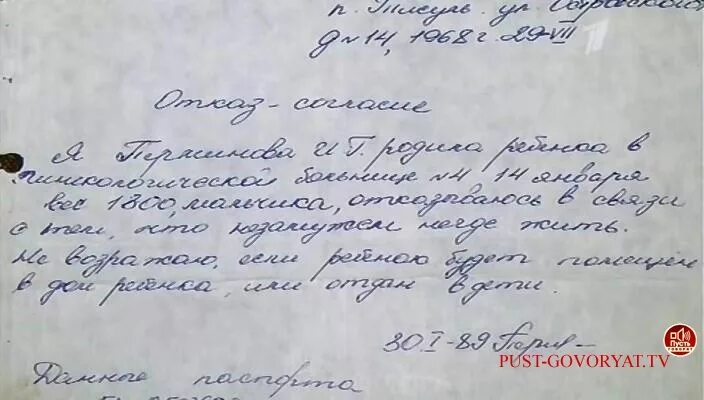 п. Тисуль. ул. Островского
д №14, 1968 г. 29-VII 1
Отказ - согласие
Я Першинова И Г. родила ребенка в
гинекологической больнице №4 14 января
вес 1800, мальчика, отказываюсь в связи
с тем, что незамужем негде жить.
Не возражаю, если ребенок будет помещен
в дом ребенка, или отдан в дети.
30 I-89
ПУСТЬ
ГОВОРЯТ
PUST-GOVORYAT.TV
Данные паспорта